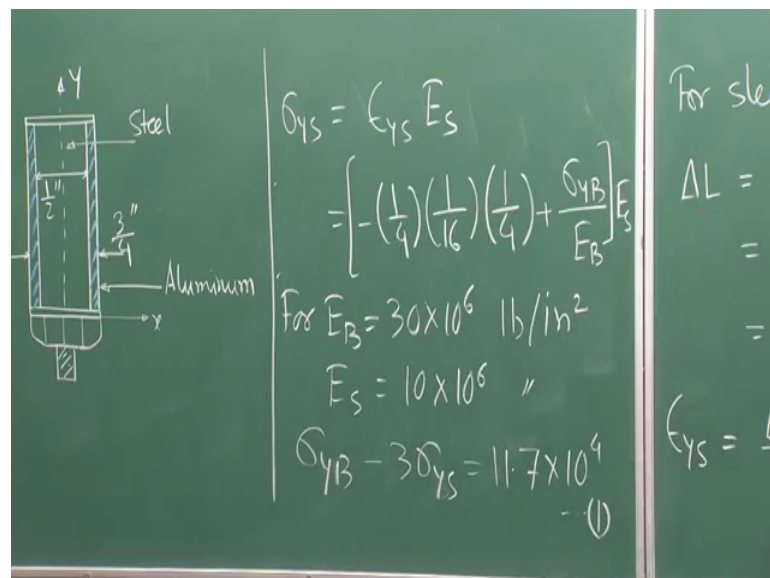 Y
Steel
1/2"
3/4"
Aluminum
x
σYS = ϵYS ES
= [-(1/4)(1/16)(1/4) + σYB/EB] ES
For EB = 30×10⁶ lb/in²
ES = 10×10⁶ "
σYB - 3σYS = 11.7×10⁴
--(1)
For sle
ΔL =
=
=
ϵYS =